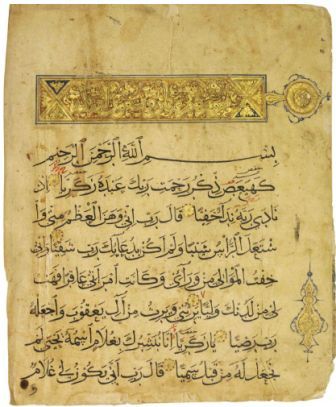 بسم الله الرحمن الرحيم
كهيعص ذكر رحمت ربك عبده زكريا اذ
نادى ربه نداء خفيا قال رب اني وهن العظم مني وا
شتعل الراس شيبا ولم اكن بدعايك رب شقيا واني
خفت الموالي من وراي وكانت امراتي عاقرا فهب
لي من لدنك وليا يرثني ويرث من آل يعقوب واجعله
رب رضيا يا زكريا انا نبشرك بغلام اسمه يحيى لم
نجعل له من قبل سميا قال رب انى يكون لي غلام